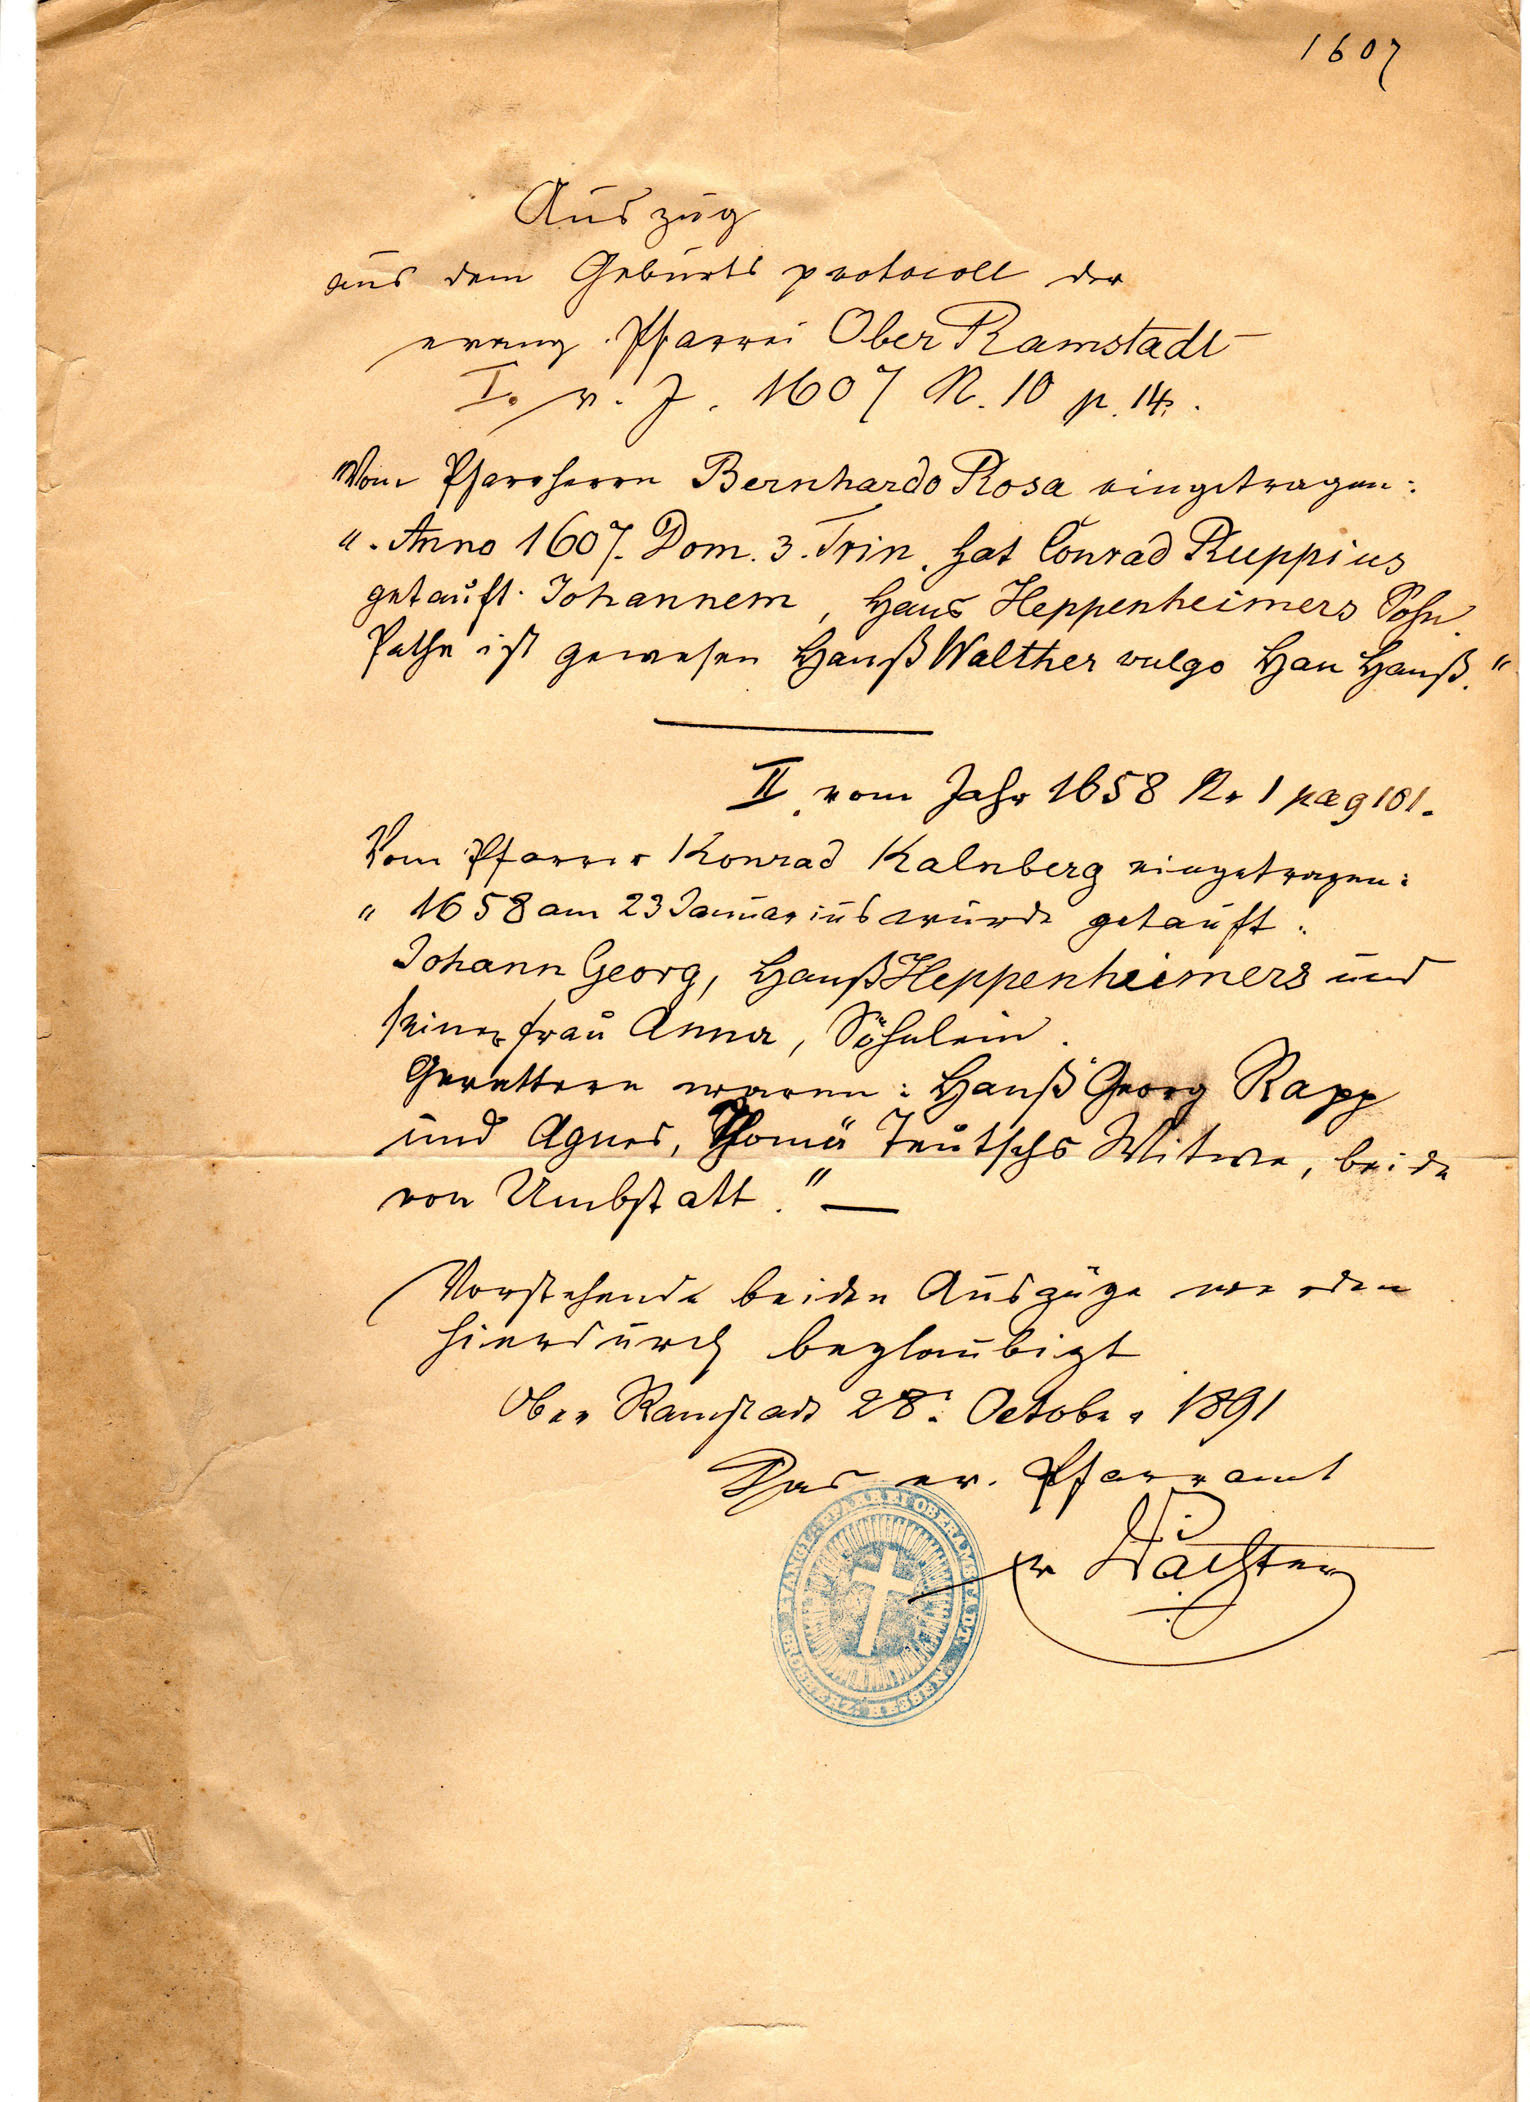 1607
Auszug
aus dem Geburts protocoll der
evang. Pfarrei Ober Ramstadt
I. v. J. 1607 N. 10 p. 14.
Vom Pfarrherrn Bernhardo Rosa eingetragen:
". Anno 1607. Dom. 3. Trin. hat Conrad Ruppius
getauft. Johannem, Hans Heppenheimers Sohn.
Pathe ist gewesen Hanß Walther vulgo Han Hanß."
II. vom Jahr 1658 Nr 1 pag 101.
Vom Pfarrer Konrad Kalnberg eingetragen:
" 1658 am 23 Januarius wurde getauft:
Johann Georg, Hanß Heppenheimers und
seiner Frau Anna, Söhnlein.
Gevattern waren: Hanß Georg Rapp
und Agnes, Thomä Teutschs Witwe, beide
von Umbstatt." —
Vorstehende beiden Auszüge werden
hierdurch beglaubigt
Ober Ramstadt 28. October 1891
Das ev. Pfarramt
Wächter
EVANGEL: PFARREI OBERRAMSTADT
GROSHERZ: HESSEN